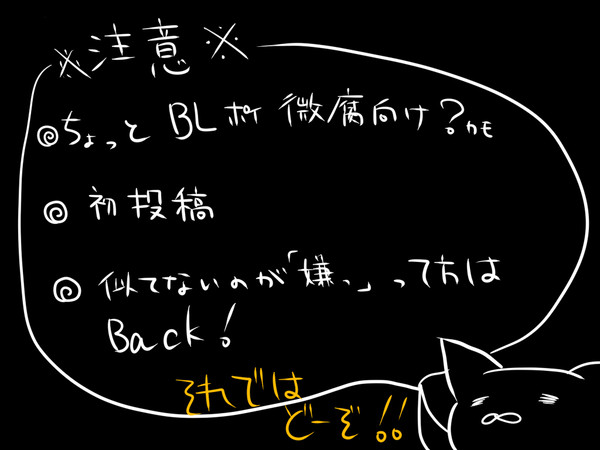 ※注意※
◎ちょっと BLポイ 微腐向け?カモ
◎初投稿
◎似てないのが「嫌っ」って方は
Back!
それでは
どーぞ!!